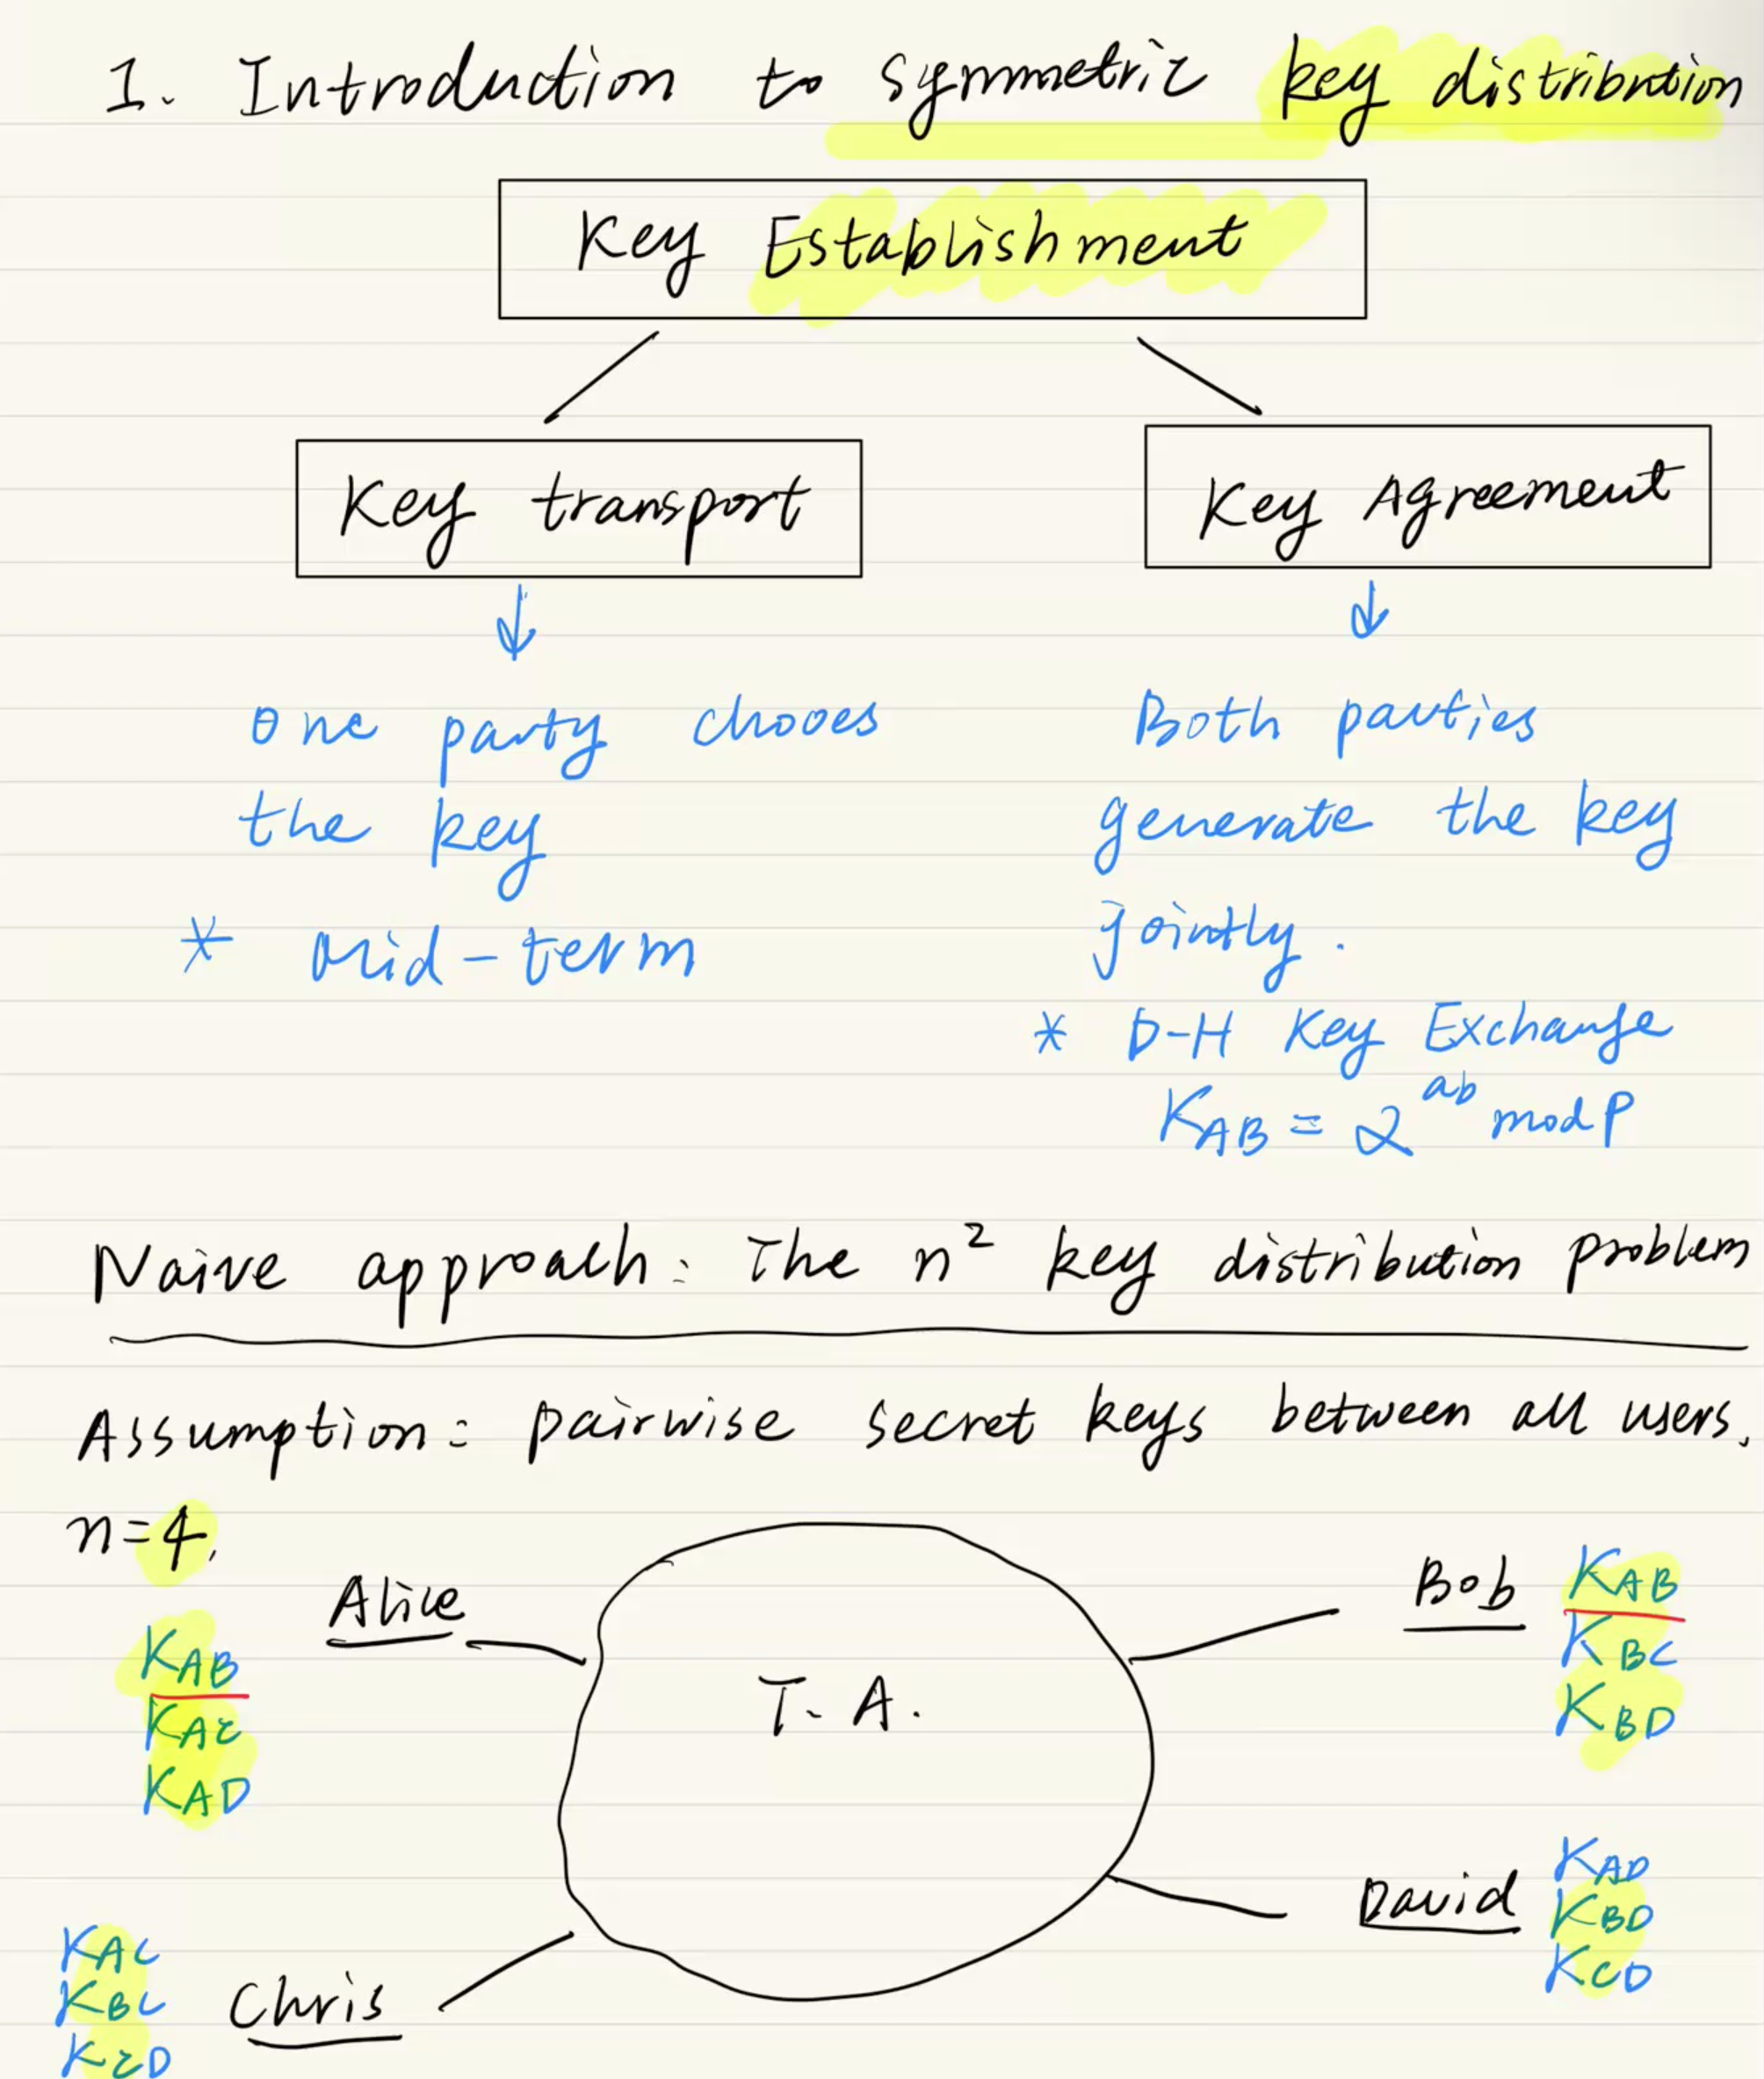 1. Introduction to symmetric key distribution
Key Establishment
Key transport
Key Agreement
One party chooes
the key
* Mid-term
Both parties
generate the key
jointly.
* D-H Key Exchange
K_AB = α^ab mod p
Naive approach: The n² key distribution problem
Assumption: pairwise secret keys between all users.
n=4,
Alice
K_AB
K_AC
K_AD
T.A.
Bob
K_AB
K_BC
K_BD
David
K_AD
K_BD
K_CD
Chris
K_AC
K_BC
K_CD